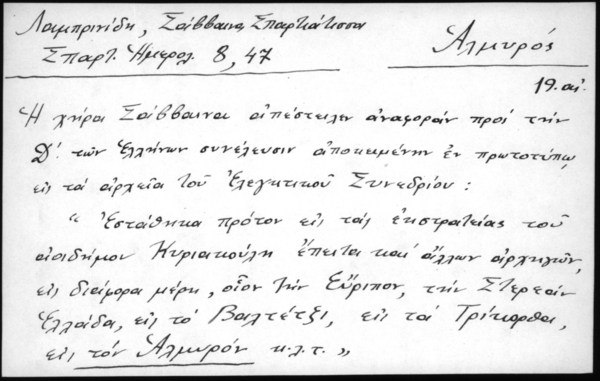 Λαμπρινίδη, Σάββαινα Σπαρτιάτισσα
Σπαρτ. Ημερολ. 8, 47
Αλμυρός
19. αἰ.
Ἡ χήρα Σάββαινα ἀπέστειλεν ἀναφοράν πρός τήν
Δ'. τῶν Ἑλλήνων συνέλευσιν ἀποκειμένην ἐν πρωτοτύπῳ
εἰς τά ἀρχεῖα τοῦ Ἐλεγκτικοῦ Συνεδρίου :
" Ἐστάθηκα πρότον εἰς τάς ἐκστρατείας τοῦ
ἀοιδήμου Κυριακούλη ἔπειτα καί ἄλλων ἀρχηγῶν,
εἰς διάφορα μέρη, οἷον τήν Εὔριπον, τήν Στερεάν
Ἑλλάδα, εἰς τό Βαλτέτζι, εἰς τά Τρίκορθα,
εἰς τόν Ἀλμυρόν κ.λ.τ. "